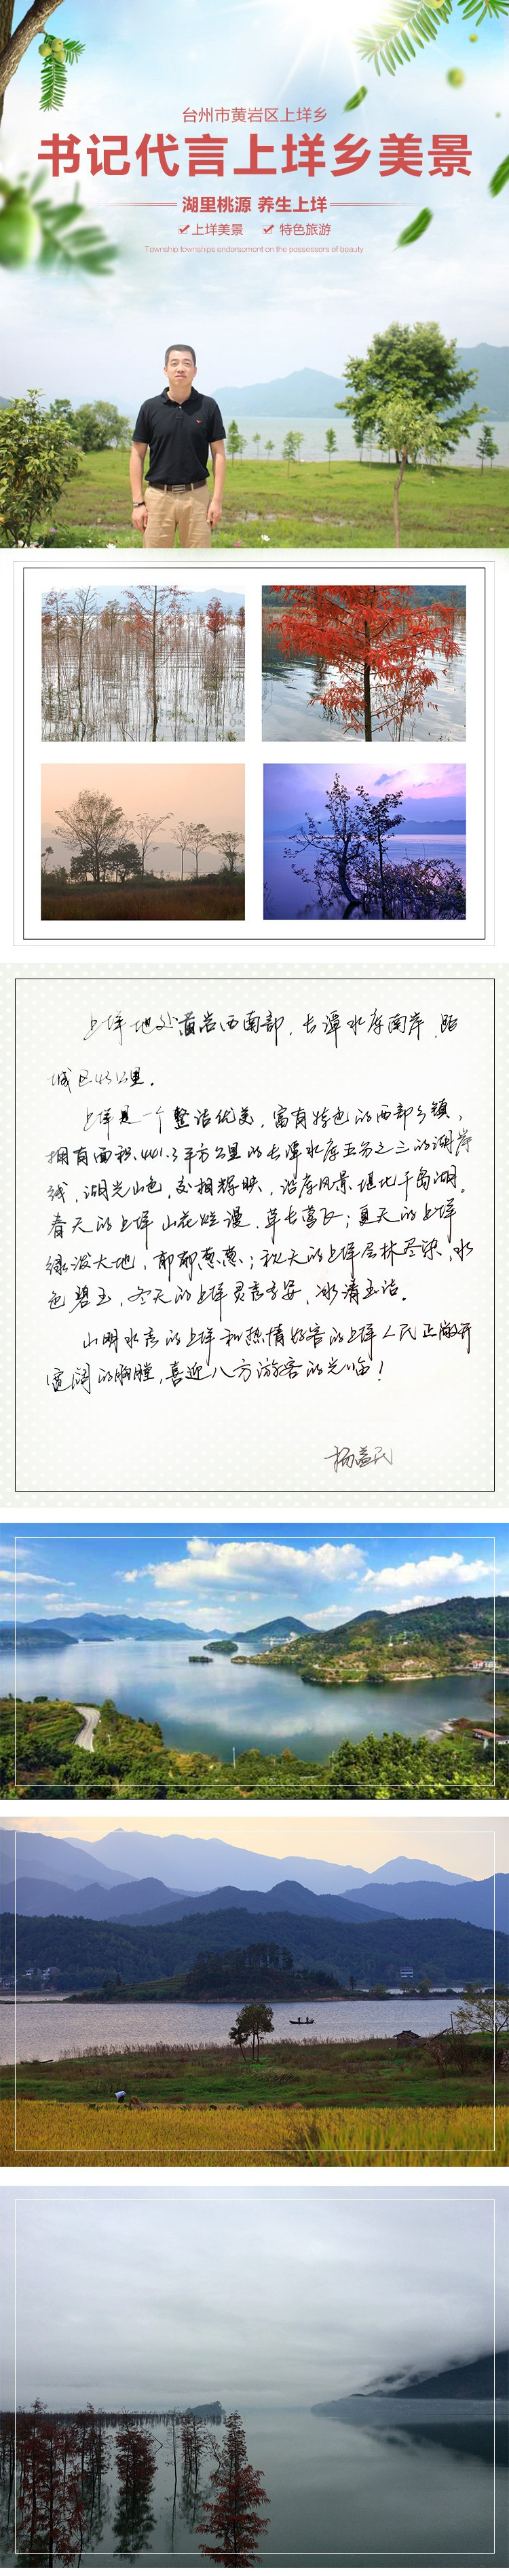 台州市黄岩区上垟乡
书记代言上垟乡美景
湖里桃源 养生上垟
上垟美景 特色旅游
Township townships endorsement on the possessors of beauty
上垟地处黄岩西南部，长潭水库南岸，距
城区43公里。
上垟是一个整洁优美，富有特色的西部乡镇，
拥有面积441.3平方公里的长潭水库五分之三的湖岸
线，湖光山色，交相辉映，沿库风景堪比千岛湖。
春天的上垟山花烂漫，草长莺飞；夏天的上垟
绿泼大地，郁郁葱葱；秋天的上垟层林尽染，水
色碧玉，冬天的上垟灵秀奇异，冰清玉洁。
山明水秀的上垟和热情好客的上垟人民正敞开
宽阔的胸膛，喜迎八方游客的光临！
杨益民